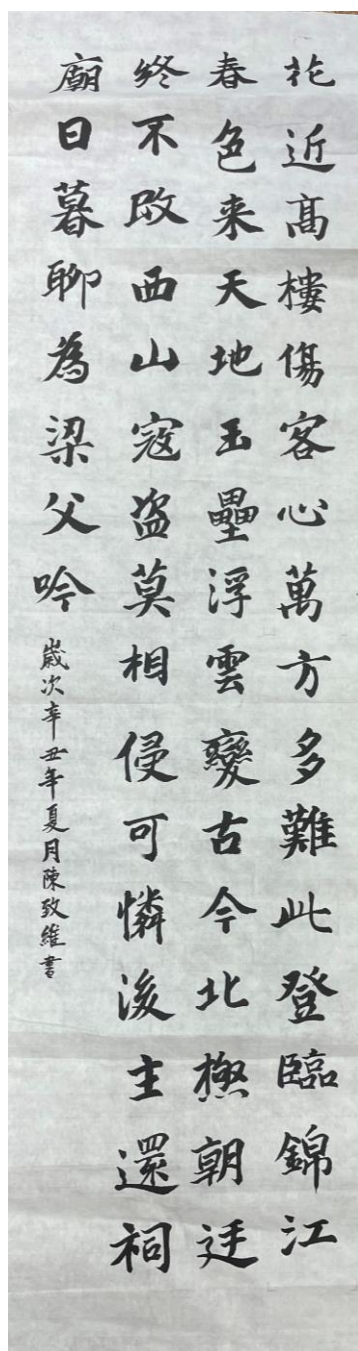 花近高樓傷客心萬方多難此登臨錦江
春色来天地玉壘浮雲變古今北極朝廷
終不改西山寇盜莫相侵可憐後主還祠
廟日暮聊為梁父吟
歲次辛丑年夏月陳致維書